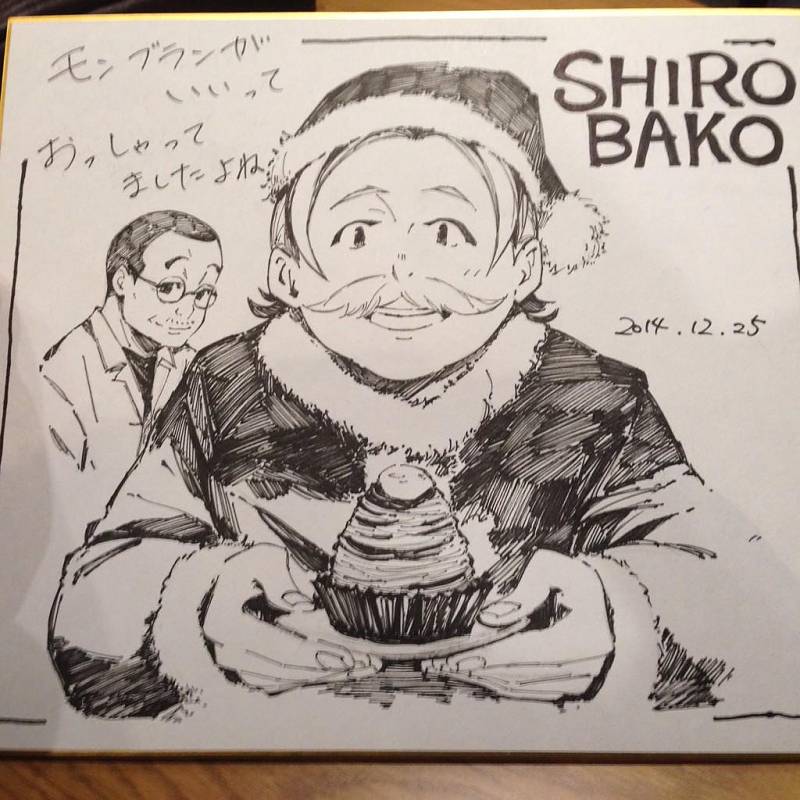 モンブランが
いいって
おっしゃって
ましたよね
SHIRŌ
BAKO
2014.12.25